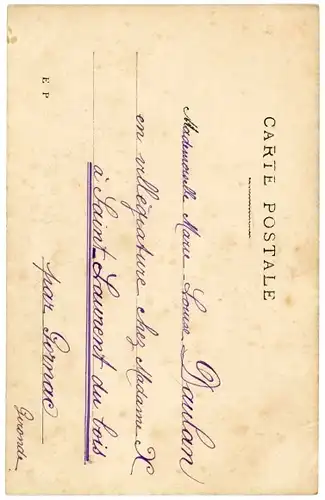 CARTE POSTALE
Mademoiselle Marie-Louise Daulan
en villégiature chez Madame X
à Saint-Laurent du bois
par Gornac
Gironde
E P